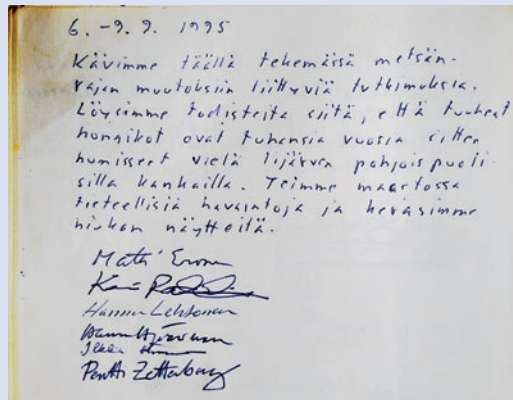 6. -9. 9. 1995
Kävimme täällä tekemässä metsän-
rajan muutoksiin liittyviä tutkimuksia.
Löysimme todisteita siitä, että tuuheat
hongikot ovat tuhansia vuosia sitten
humisseet vielä Iijärven pohjoispuoli-
silla kankailla. Teimme maastossa
tieteellisiä havaintoja ja keräsimme
hiukan näytteitä.
Matti Eronen
Hannu Lehtonen
Pentti Zetterberg